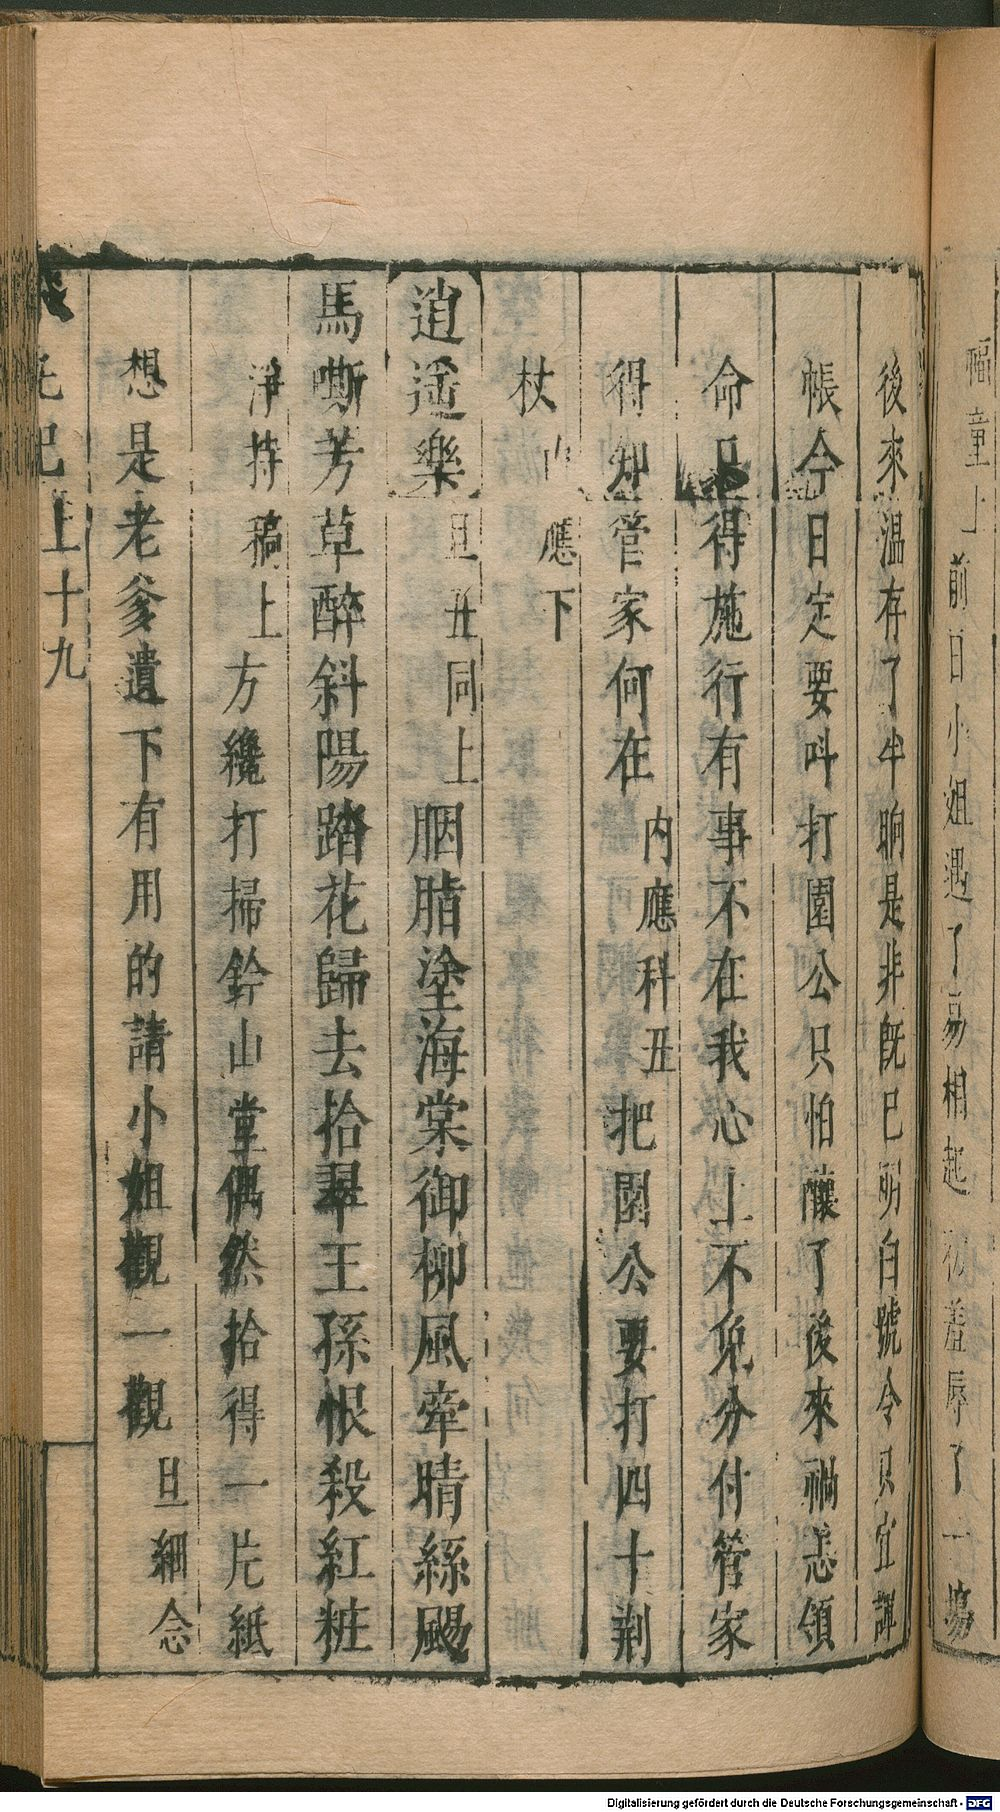 福童上前日小姐遇了易相起初羞辱了一場
後來溫存了半晌是非既已明白號令只宜謹
帳今日定要呌打園公只怕釀了後來禍恙領
命只得施行有事不在我心上不免分付管家
得知管家何在內應科丑把園公要打四十荆
杖內應下
逍遥樂旦丑同上胭脂塗海棠御柳風牽晴絲颺
馬嘶芳草醉斜陽踏花歸去拾翠王孫恨殺紅粧
淨持稿上方纔打掃鈐山堂偶然拾得一片紙
想是老爹遺下有用的請小姐觀一觀旦細念
記上十九
Digitalisierung gefördert durch die Deutsche Forschungsgemeinschaft - DFG